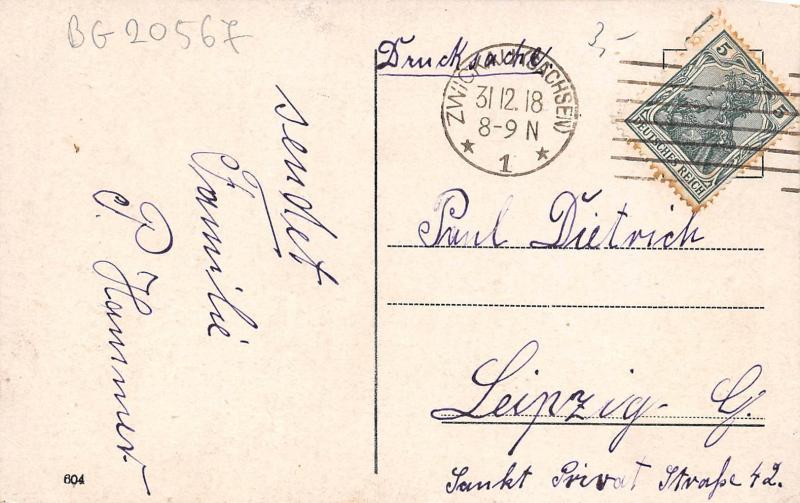 BG 20567
sendet
Familie
P. Hammer.
604
Drucksache
3,-
ZWICKAU (SACHSEN)
31 12.18
8-9 N
* 1 *
5
5
DEUTSCHES REICH
Paul Dietrich
Leipzig- G.
Sankt Privat Straße 42.